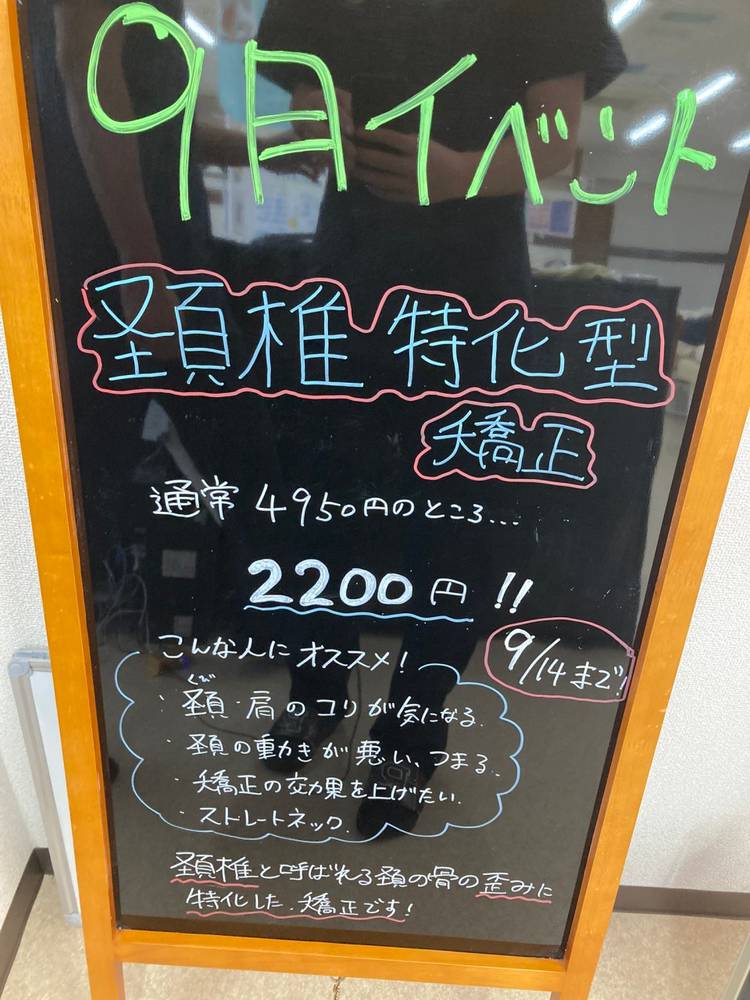 9月イベント
頚椎 特化型
矯正
通常 4950円のところ...
2200円 !!
9/14まで!
こんな人にオススメ!
くび
・頚・肩のコリが気になる.
・頚の動きが悪い、つまる.
・矯正の効果を上げたい.
・ストレートネック.
頚椎と呼ばれる頚の骨の歪みに
特化した.矯正です!